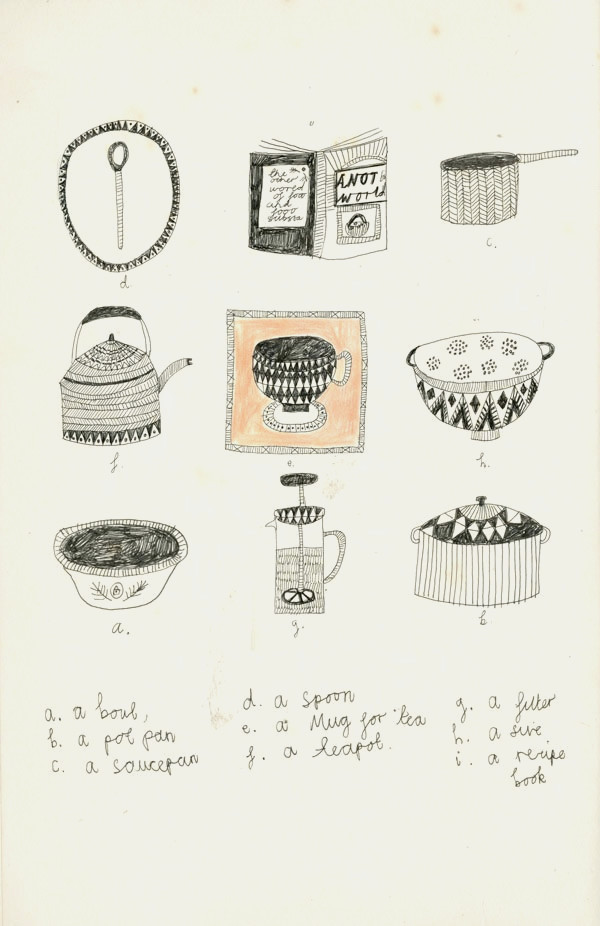 the
other
world
of foo
and
food
substa
ANOT
World
c.
d
f.
e.
h.
a.
g.
b
a. a boul,
b. a pot pan
c. a saucepan
d. a spoon
e. a Mug for tea
f. a teapot.
g. a filter
h. a sive,
i. a recipe
book